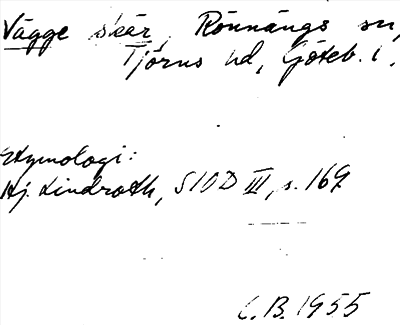 Vägge skär, Rönnängs sn,
Tjörns hd, Göteb. l.
Etymologi:
Hj. Lindroth, SIOD III, s. 169
C.B. 1955